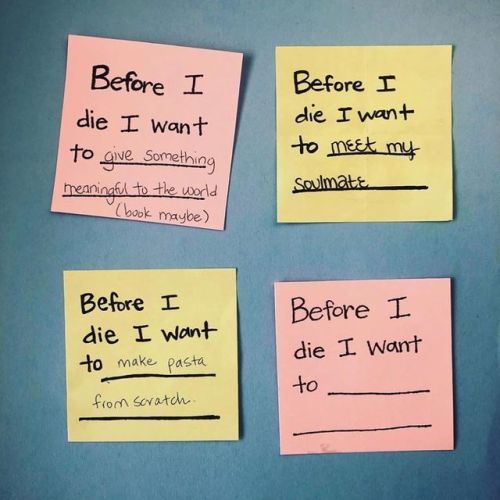 Before I
die I want
to give something
meaningful to the world
(book maybe)
Before I
die I want
to meet my
soulmate
Before I
die I want
to make pasta
from scratch.
Before I
die I want
to